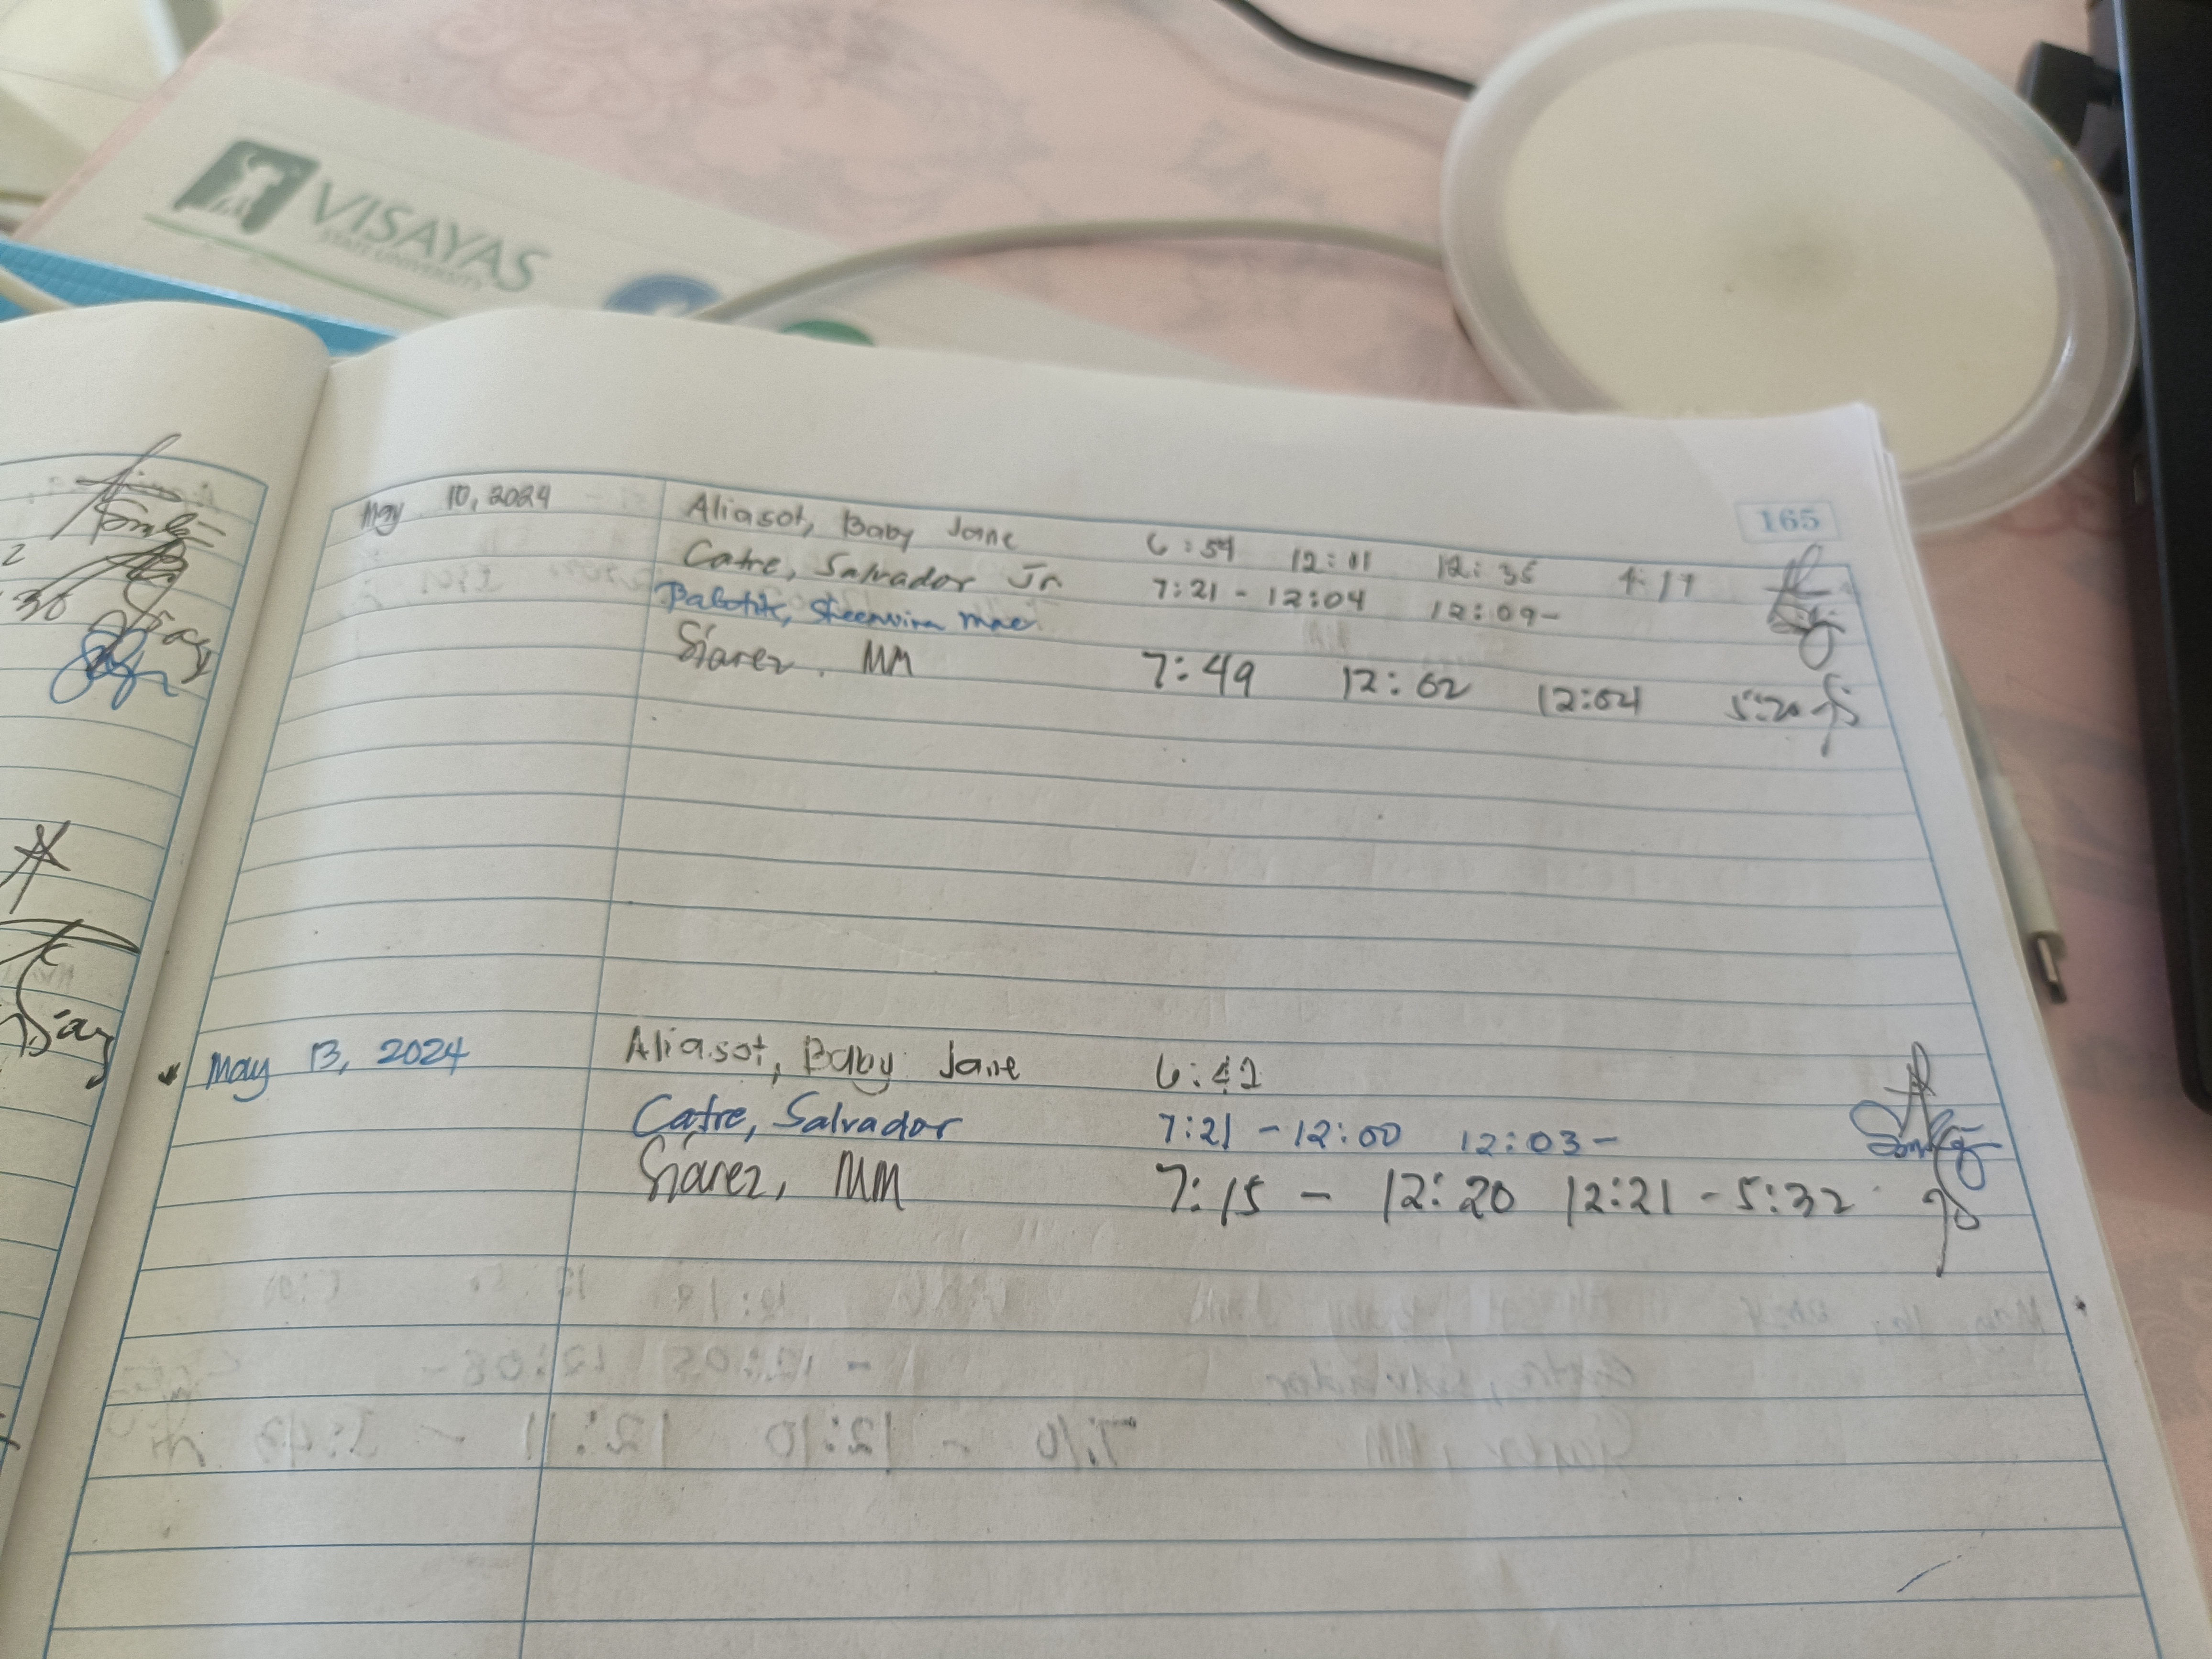 VISAYAS
STATE UNIVERSITY
165
May 10, 2024 Aliasot, Baby Jane 6:59 12:11 12:35 4:17
Catre, Salvador Jr 7:21 - 12:04 12:09-
Siarez, MM 7:49 12:02 12:04 5:20
May 13, 2024 Aliasot, Baby Jane 6:42
Catre, Salvador 7:21 - 12:00 12:03 -
Siarez, MM 7:15 - 12:20 12:21 - 5:32